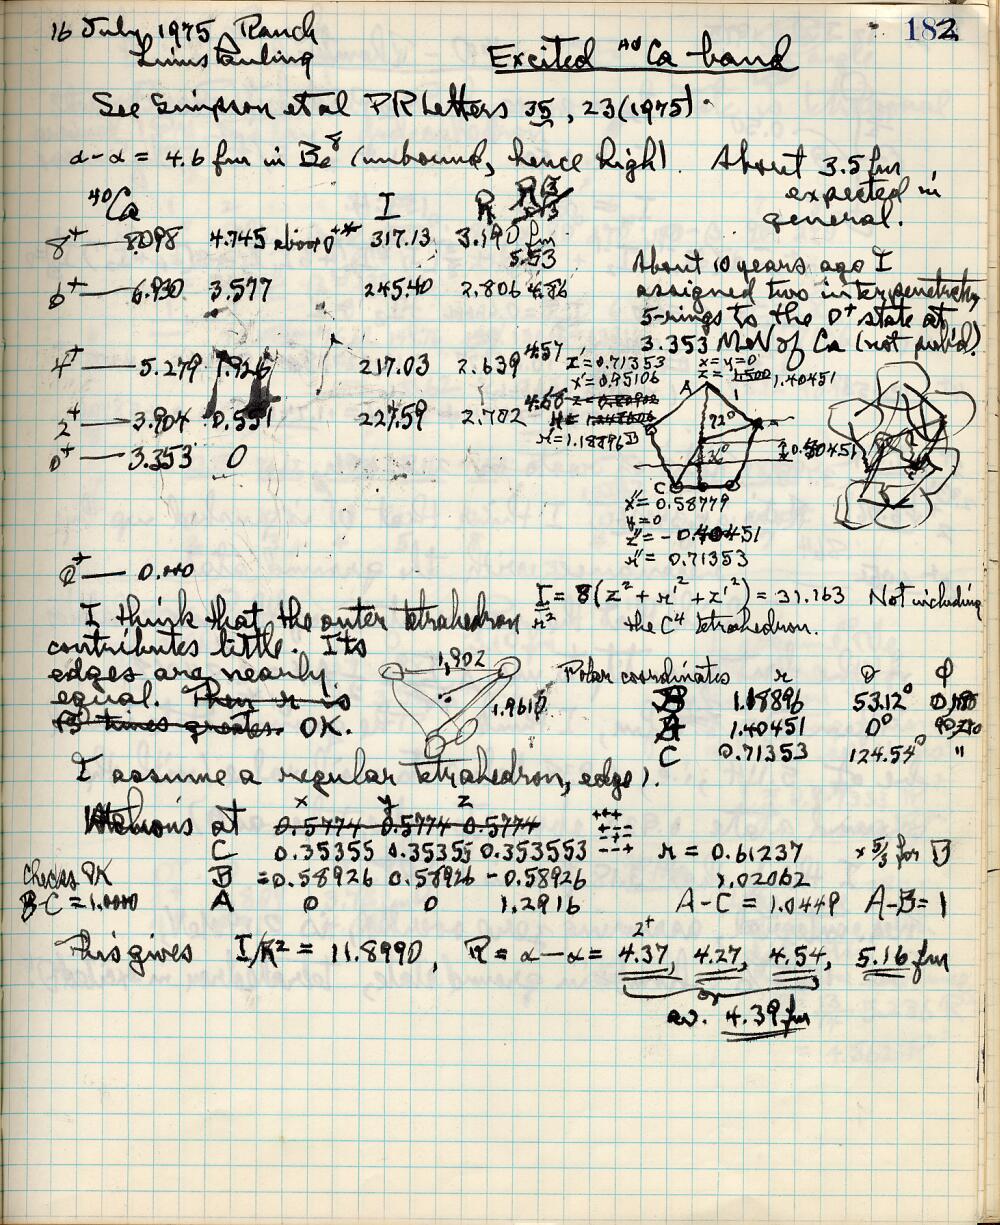 16 July 1975 Ranch
182
Linus Pauling
Excited ⁴⁰Ca band
See Simpson et al PR Letters 35, 23 (1975).
α-α = 4.6 fm in Be⁸ (unbound, hence high). About 3.5 fm
expected in
general.
⁴⁰Ca I R
8⁺ — 8.098 4.745 above 0⁺* 317.13 3.190 fm
5.53
6⁺ — 6.930 3.577 245.40 2.806 4.86
4⁺ — 5.279 1.926 217.03 2.639 4.57
2⁺ — 3.904 0.551 227.59 2.702 4.68
0⁺ — 3.353 0
0⁺ — 0.000
About 10 years ago I
assigned two interpenetrating
5-rings to the 0⁺ state at
3.353 MeV of Ca (not publ'd).
z' = 0.71353
x' = 0.95106
r' = 1.18896
x = y = 0
z = 1.40451
A
B
C
72°
36°
x" = 0.58779
y = 0
z" = - 0.40451
r" = 0.71353
I/R² = 8(z² + r'² + z'²) = 31.163 Not including
the C⁴ tetrahedron.
I think that the outer tetrahedron
contributes little. Its
edges are nearly
equal. Then r is
√3 times greater. OK.
1.902
1.9618
Polar coordinates r θ φ
B 1.18896 53.12° 0,180
A 1.40451 0° 90,270
C 0.71353 124.54° "
I assume a regular tetrahedron, edge 1.
x y z
Helions at 0.5774 0.5774 0.5774
C 0.35355 0.35355 0.353553 r = 0.61237 × 5/3 for B
+++
+--
-+-
--+
Checks OK B = 0.58926 0.58926 - 0.58926 1.02062
B-C = 1.0000 A 0 0 1.2916 A-C = 1.0449 A-B = 1
This gives I/R² = 11.8990, R = α-α = 4.37, 4.27, 4.54, 5.16 fm
2⁺
av. 4.39 fm